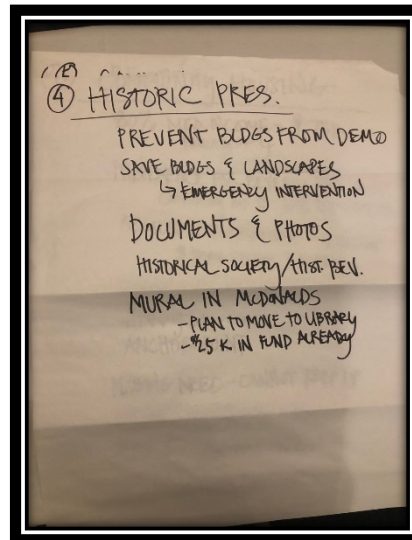 ④ HISTORIC PRES.
PREVENT BLDGS FROM DEMO
SAVE BLDGS & LANDSCAPES
↳ EMERGENCY INTERVENTION
DOCUMENTS & PHOTOS
HISTORICAL SOCIETY/HIST. REV.
MURAL IN MCDONALDS
- PLAN TO MOVE TO LIBRARY
- $25 K IN FUND ALREADY